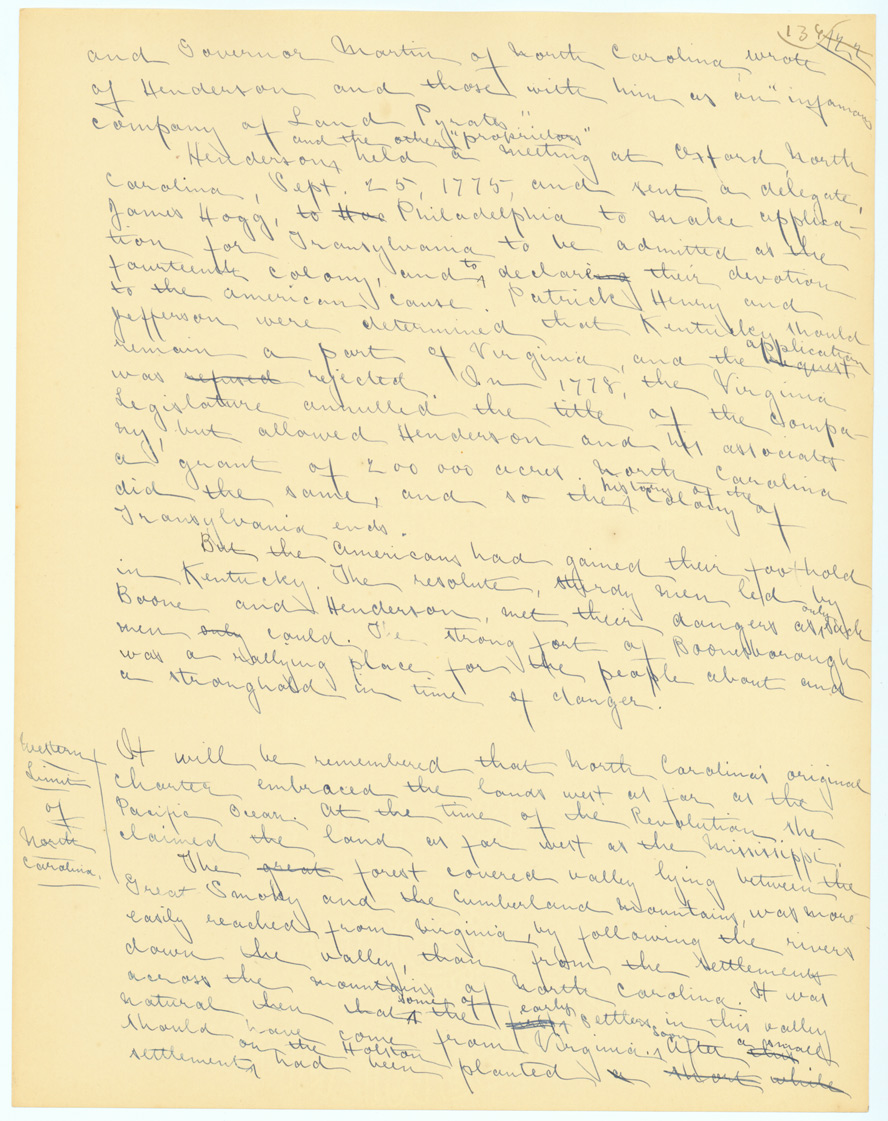 134
and Governor Martin of North Carolina wrote
of Henderson and those with him as an "infamous
company of Land Pyrates"
and the other "proprietors"
Henderson, held a meeting at Oxford, North
Carolina, Sept. 25, 1775, and sent a delegate,
James Hogg, to Philadelphia to make applica-
tion for Transylvania to be admitted as the
fourteenth colony, and to declaring their devotion
to the American cause. Patrick Henry and
Jefferson were determined that Kentucky should
application
remain a part of Virginia, and the request
was refused rejected. In 1778, the Virginia
Legislature annulled the title of the Compa-
ny, but allowed Henderson and his associates
a grant of 200 000 acres. North Carolina
history of the
did the same, and so the Colony of
Transylvania ends.
But the Americans had gained their foothold
in Kentucky. The resolute, sturdy men led by
only
Boone and Henderson, met their dangers as such
men only could. The strong fort of Boonesborough
was a rallying place for the people about and
a stronghold in time of danger.
Western
Limit
of
North
Carolina.
It will be remembered that North Carolina's original
Charter embraced the lands west as far as the
Pacific Ocean. At the time of the Revolution she
claimed the land as far west as the Mississippi.
The great forest covered valley lying between the
Great Smoky and the Cumberland Mountains, was more
easily reached from Virginia, by following the rivers
down the valley, than from the settlements
across the mountains of North Carolina. It was
some of early
natural then that the settlers in this valley
should have come from Virginia. Soon After this a small
on the Holston
settlement, had been planted a short while